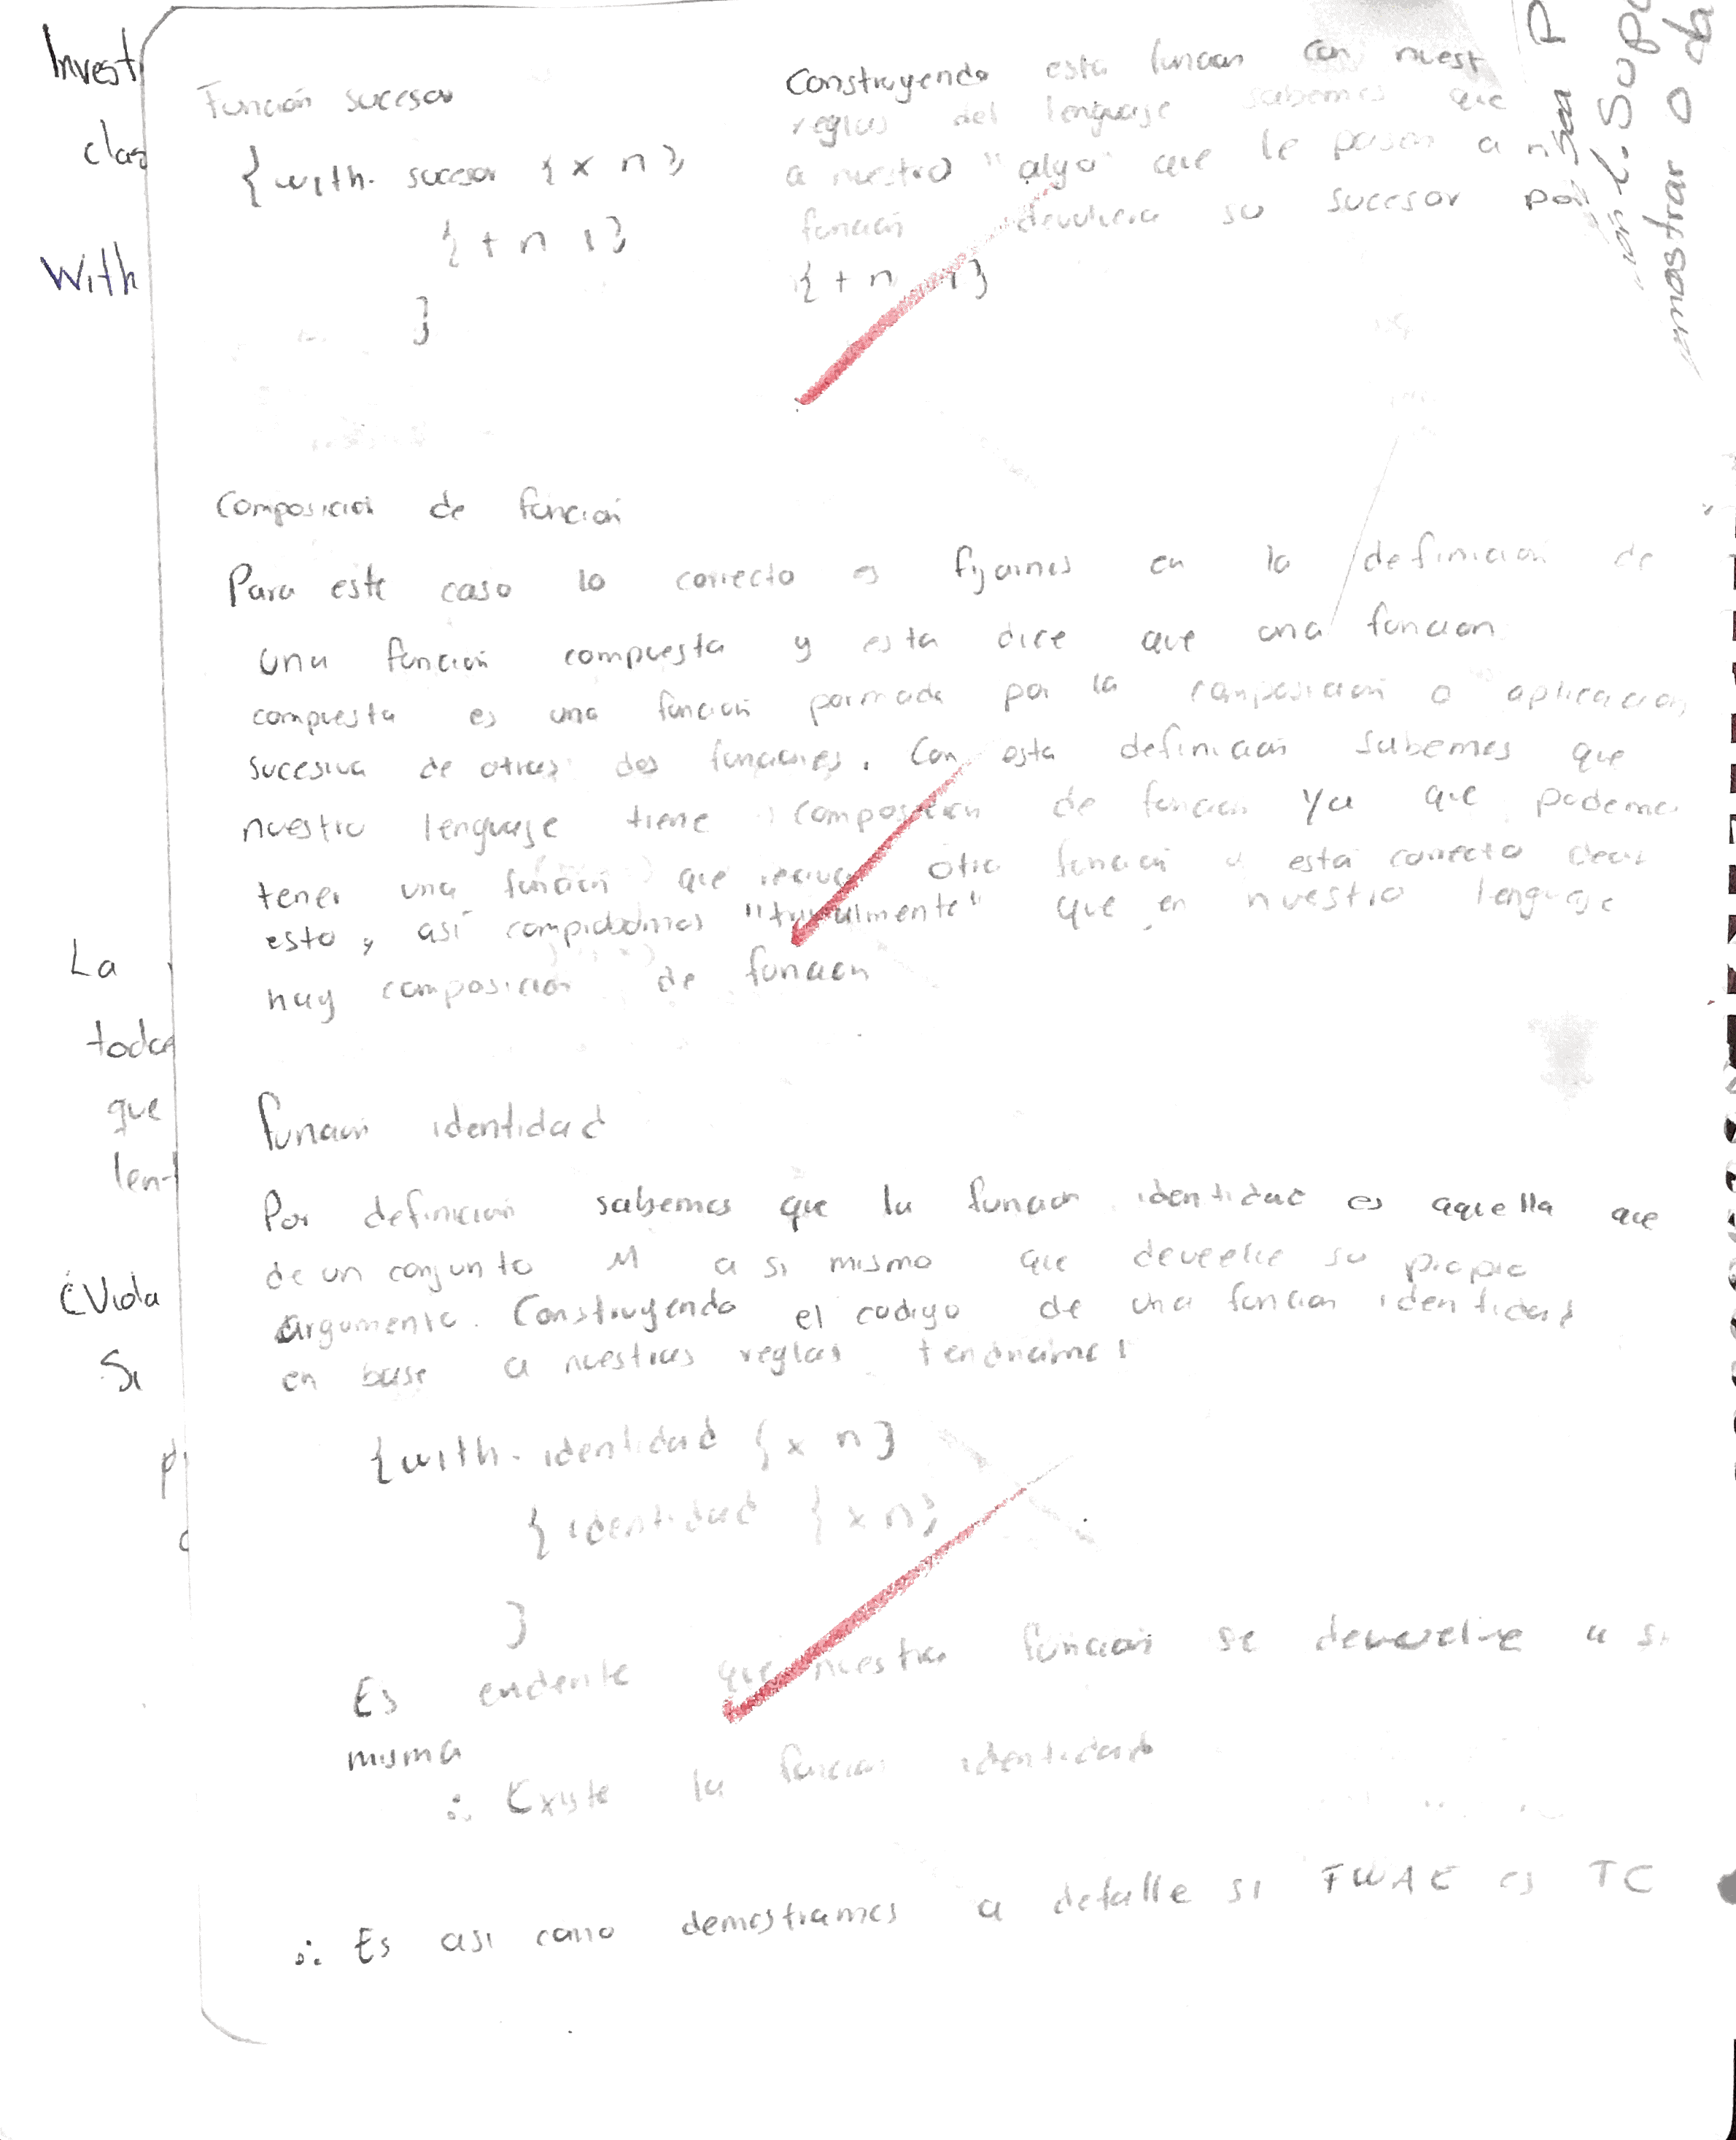 Invest
clas
With
La
toda
que
len
¿Viola
Si
Función sucesor
{with sucesor {x n}
{+ n 1}
}
Construyendo esta funcion con nuest
reglas del lenguaje sabemos que
a nuestro "algo" que le pasen a
función devolvera su sucesor por
{+ n 1}
mostrar o da
Composición de función
Para este caso lo correcto es fijarnos en la definicion de
una función compuesta y esta dice que una funcion
compuesta es una función pormada por la composicion o aplicacion
sucesiva de otras dos funciones. Con esta definicion sabemos que
nuestro lenguaje tiene composicion de funcion ya que podemo
tener una función que reciva otra funcion está correcto decir
esto, así comprobamos "trivialmente" que en nuestro lenguaje
hay composicion de funcion
Función identidad
Por definicion sabemos que la funcion identidad es aquella que
de un conjunto M a si mismo que devuelve su propio
argumento. Construyendo el codigo de una funcion identidad
en base a nuestras reglas tendriamos
{with identidad {x n}
{identidad {x n}
}
Es evidente que nuestra funcion se devuelve a si
misma
∴ Existe la funcion identidad
∴ Es asi como demostramos a detalle si FWAE es TC